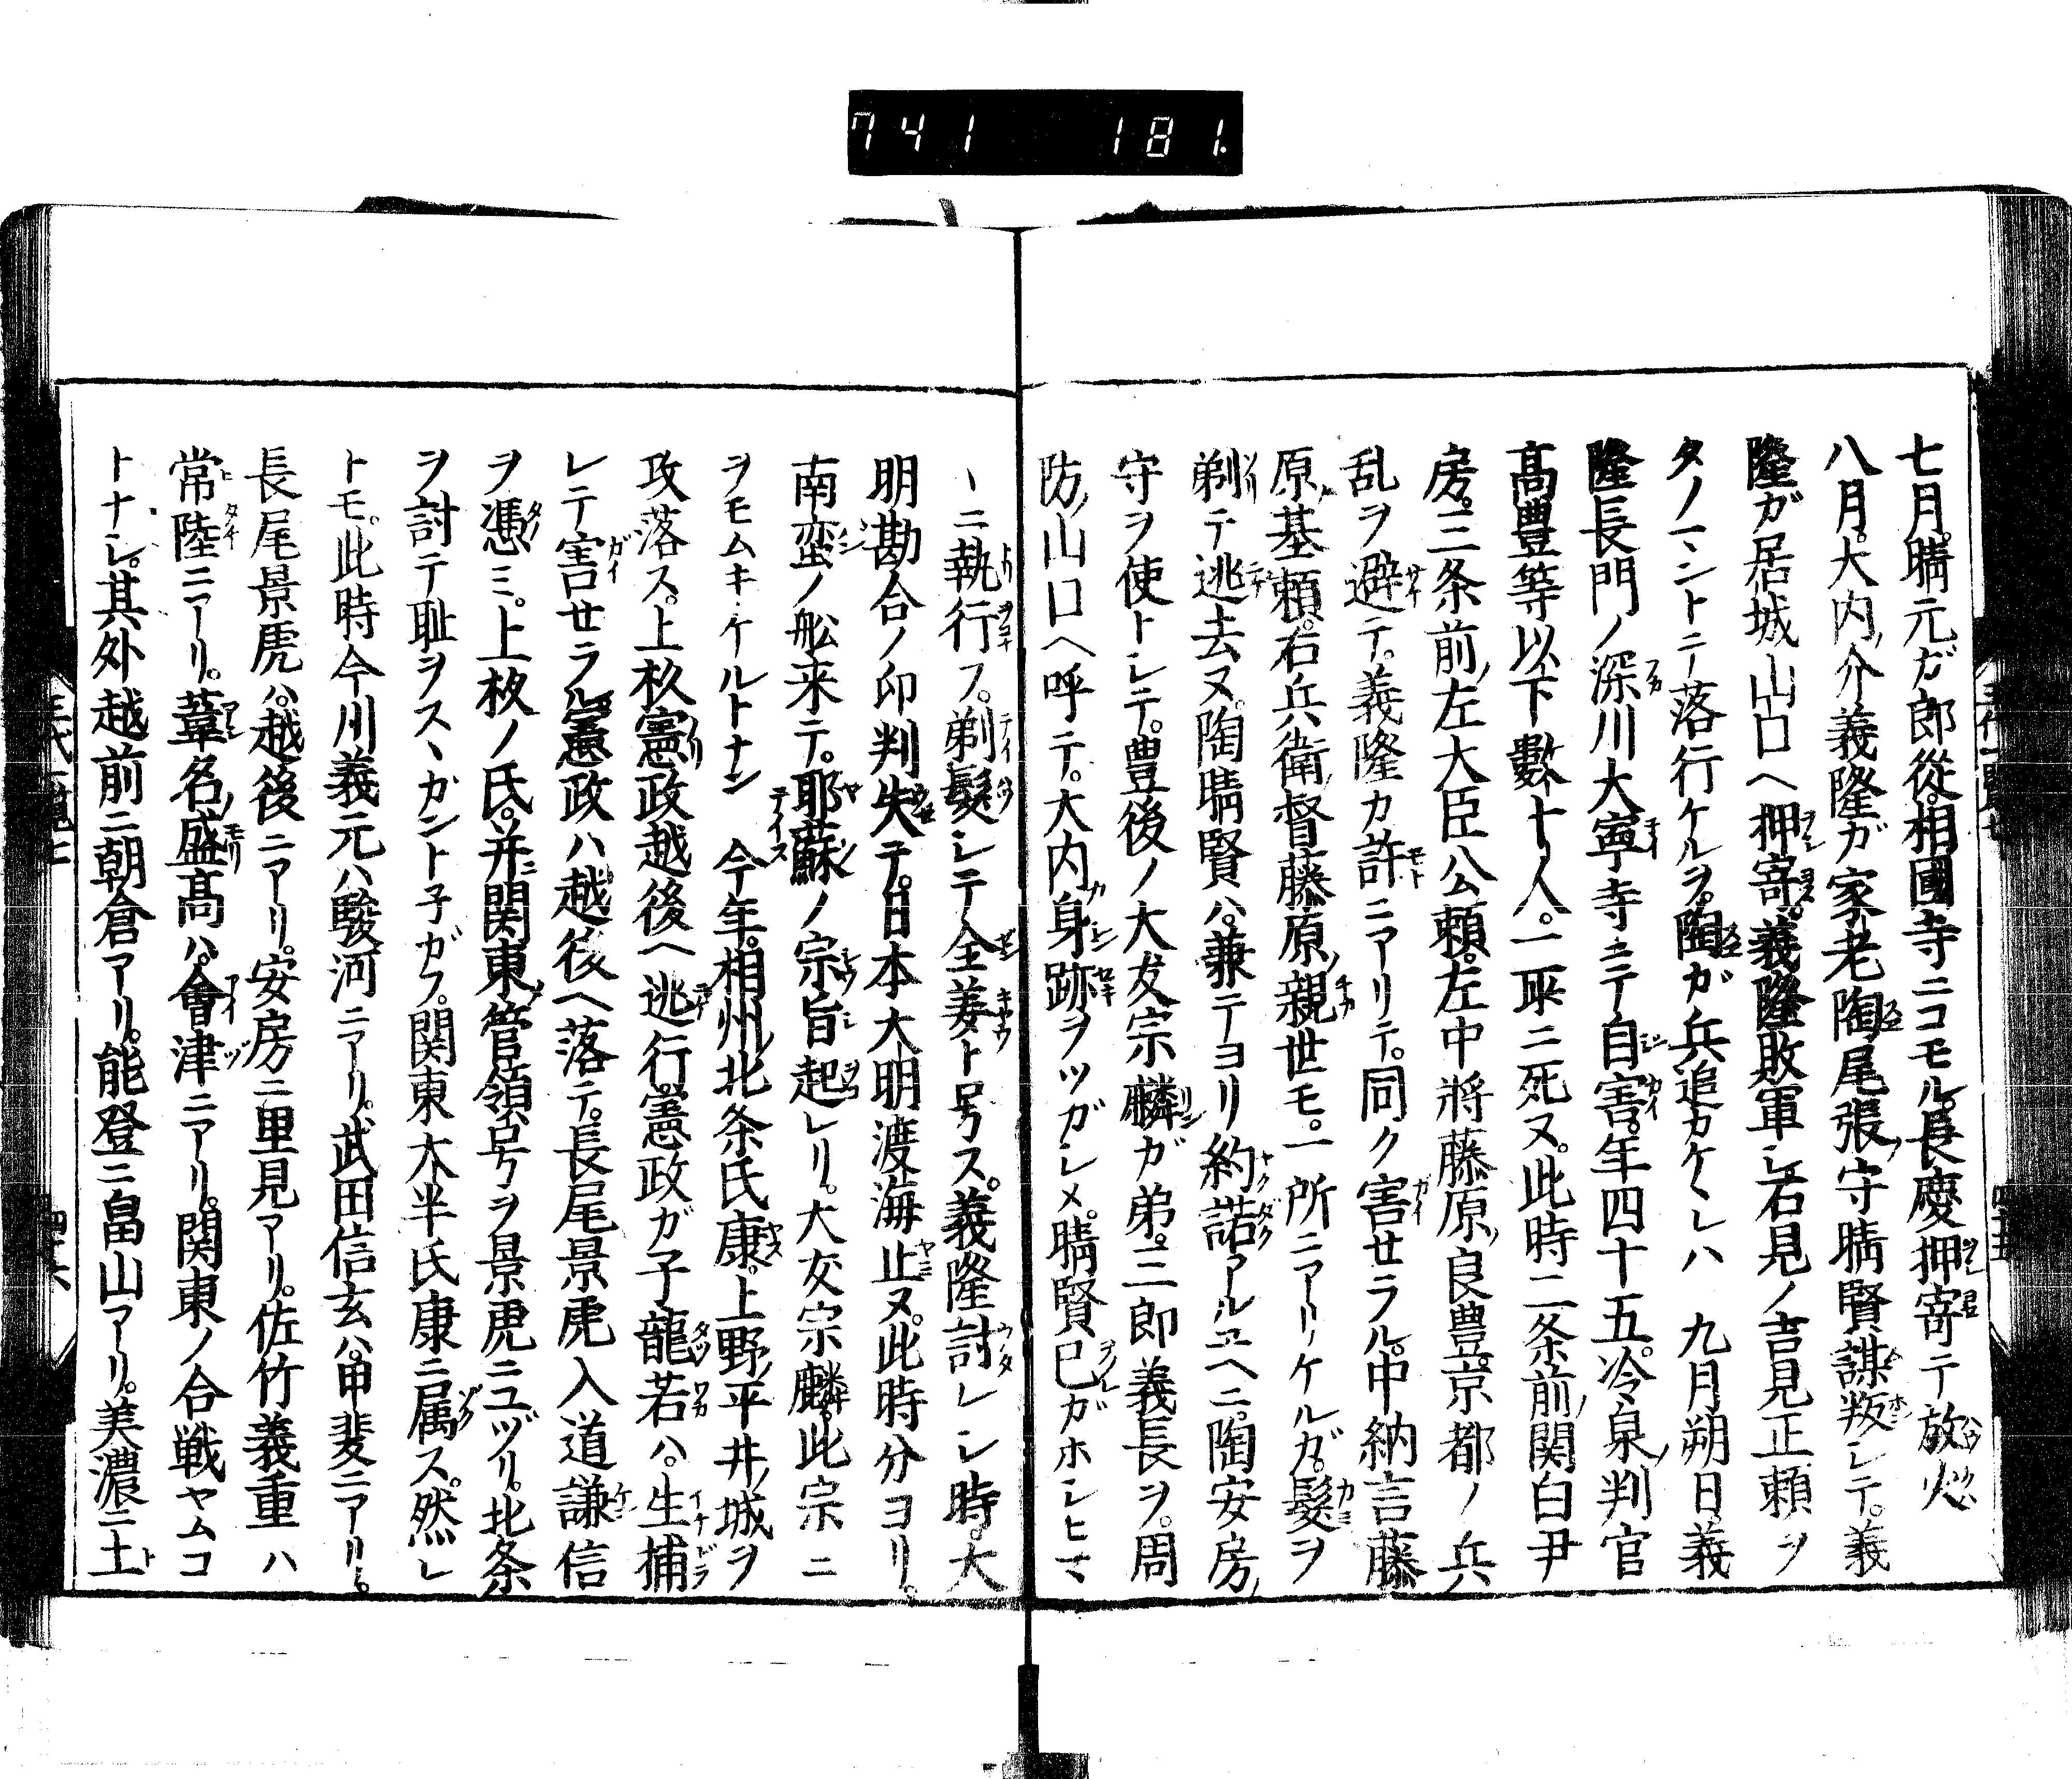 741 181.
七月。晴元ガ郎從。相國寺ニコモル。長慶押寄テ放火
八月。大内ノ介義隆ガ家老陶尾張ノ守晴賢謀叛シテ。義
隆ガ居城山口ヘ押寄ス。義隆敗軍シ石見ノ吉見正頼ヲ
タノマントニテ落行ケルヲ。陶ガ兵追カケヽレハ　九月朔日。義
隆長門ノ深川大寧寺ニテ自害。年四十五。冷泉ノ判官
髙豊等以下數十人。一所ニ死ヌ。此時二条前ノ関白尹
房。三条前ノ左大臣公頼。左中將藤原ノ良豊。京都ノ兵
乱ヲ避テ。義隆カ許ニアリテ。同ク害セラル。中納言藤
原ノ基頼。右兵衛ノ督藤原ノ親世モ。一所ニアリケルガ。髮ヲ
剃テ逃去ヌ。陶晴賢ハ。兼テヨリ約諾アルユヘニ。陶安房ノ
守ヲ使トシテ。豊後ノ大友宗麟ガ弟。三郎義長ヲ。周
防ノ山口ヘ呼テ。大内ノ身跡ヲツガシメ。晴賢己ガホシヒマ
ヽニ執行フ。剃髮シテ全姜ト号ス。義隆討レシ時。大
明勘合ノ印判失テ。日本大明渡海止ヌ。此時分ヨリ。
南蛮ノ舩来テ。耶蘇ノ宗旨起レリ。大友宗麟。此宗ニ
ヲモムキケルトナン　今年。相州ノ北条氏康。上野ノ平井ノ城ヲ
攻落ス。上杉憲政越後ヘ逃行。憲政ガ子龍若ハ。生捕
レテ害セラル。憲政ハ越後ヘ落テ。長尾景虎入道謙信
ヲ憑ミ。上杦ノ氏。并関東ノ管領号ヲ景虎ニユヅリ。北条
ヲ討テ耻ヲスヽガント子ガフ。関東大半氏康ニ属ス。然レ
トモ。此時今川義元ハ駿河ニアリ。武田信玄ハ。甲斐ニアリ。
長尾景虎ハ。越後ニアリ。安房ニ里見アリ。佐竹義重ハ
常陸ニアリ。葦名ノ盛高ハ。會津ニアリ。関東ノ合戦ヤムコ
トナシ。其外越前ニ朝倉アリ。能登ニ畠山アリ。美濃ニ土